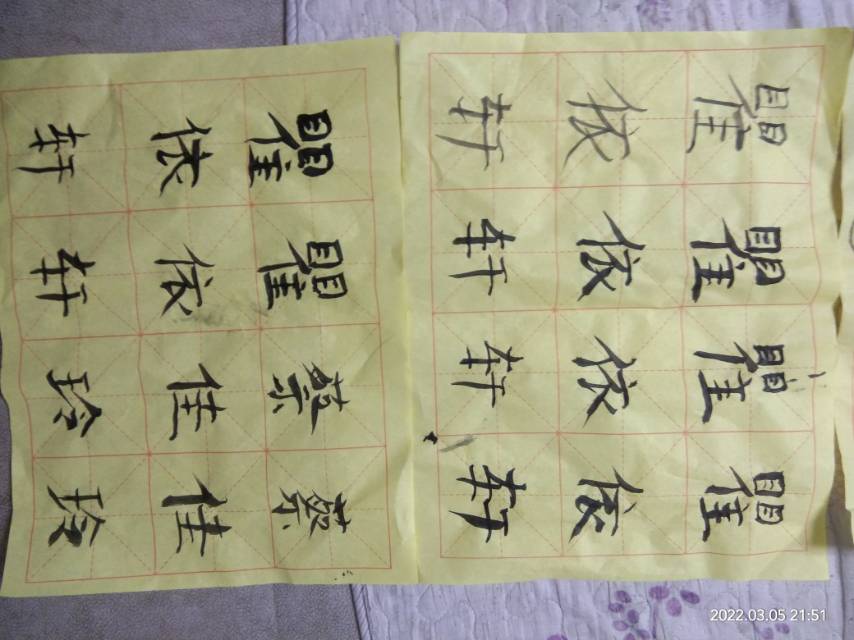 瞿依轩
瞿依轩
瞿依轩
瞿依轩
瞿依轩
瞿依轩
蔡佳玲
蔡佳玲
2022.03.05 21:51